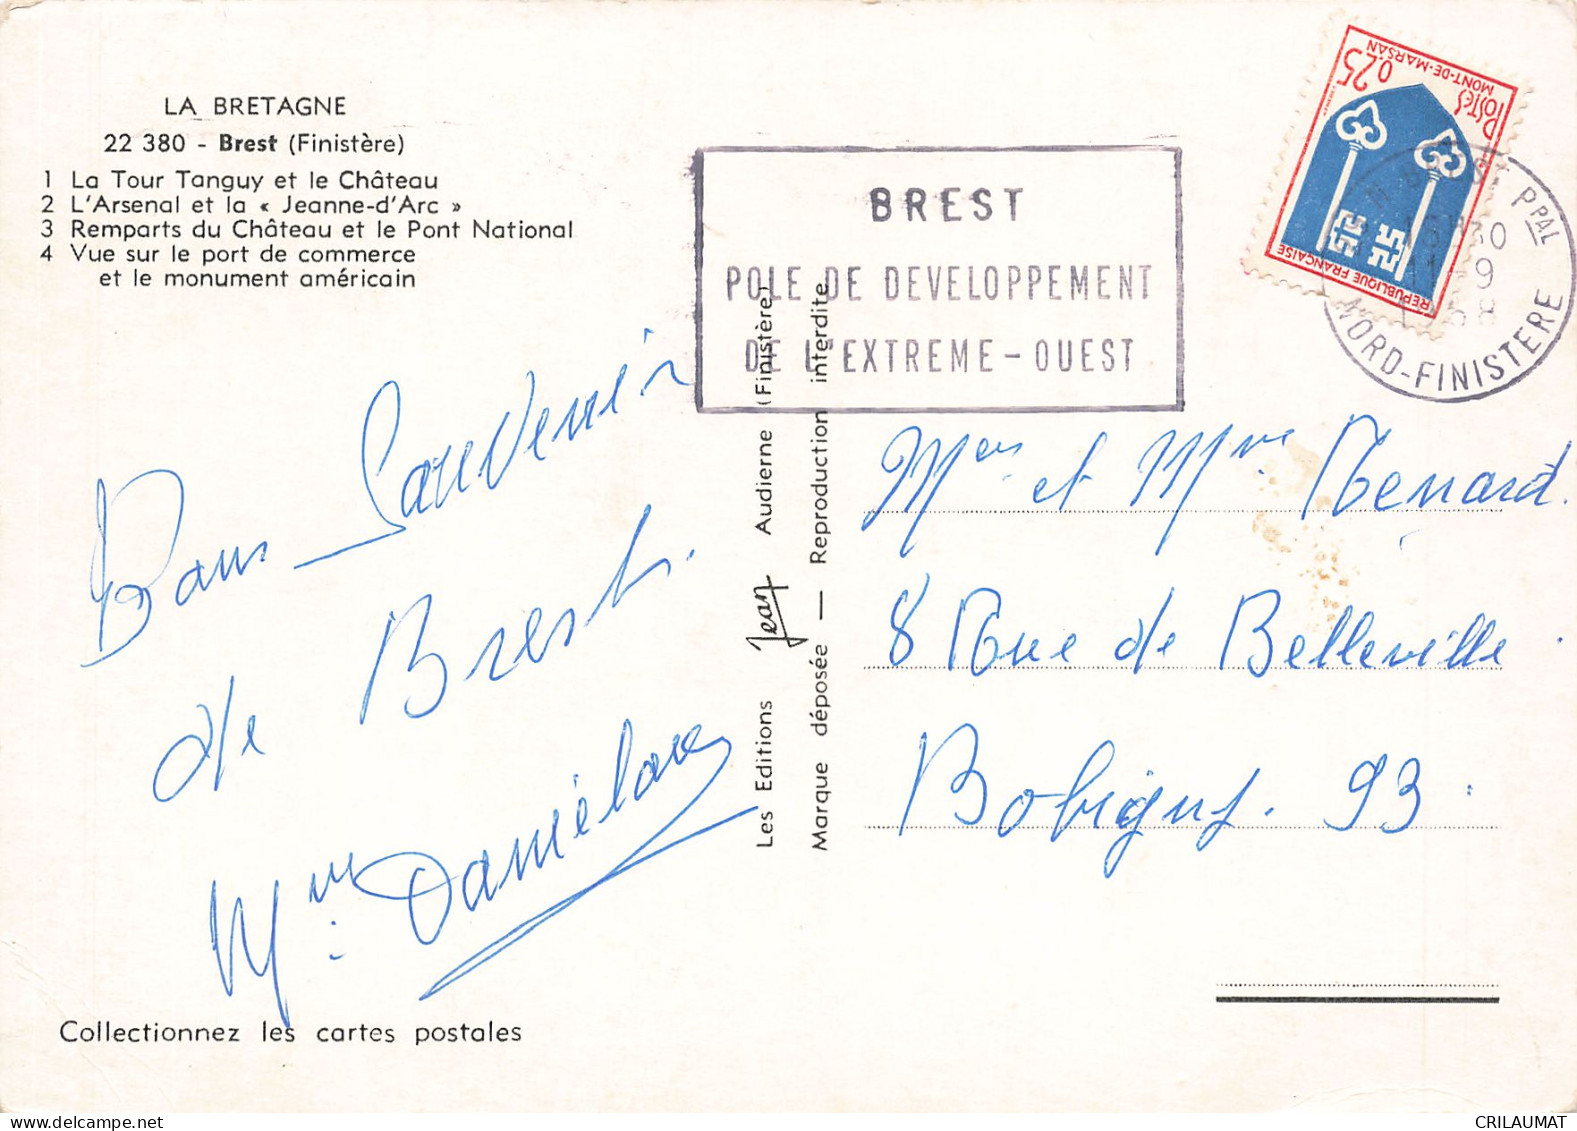 LA BRETAGNE
22 380 - Brest (Finistère)
1 La Tour Tanguy et le Château
2 L'Arsenal et la « Jeanne-d'Arc »
3 Remparts du Château et le Pont National
4 Vue sur le port de commerce
et le monument américain
Bons Souvenir
de Brest.
Mme
Collectionnez les cartes postales
Les Editions Jean Audierne (Finistère)
Marque déposée — Reproduction interdite
BREST
POLE DE DEVELOPPEMENT
DE L'EXTREME-OUEST
POSTES 0,25
MONT-DE-MARSAN
REPUBLIQUE FRANÇAISE
PPAL
30
9
NORD-FINISTERE
et Mme Menard.
8 Rue de Belleville
Bobigny. 93
CRILAUMAT